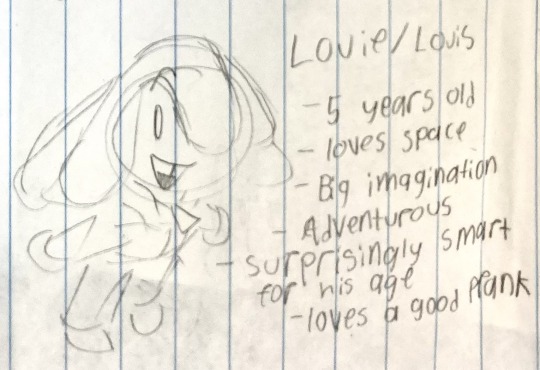 Louie/Louis
- 5 years old
- loves space
- Big imagination
- Adventurous
- surprisingly smart
for his age
- loves a good prank